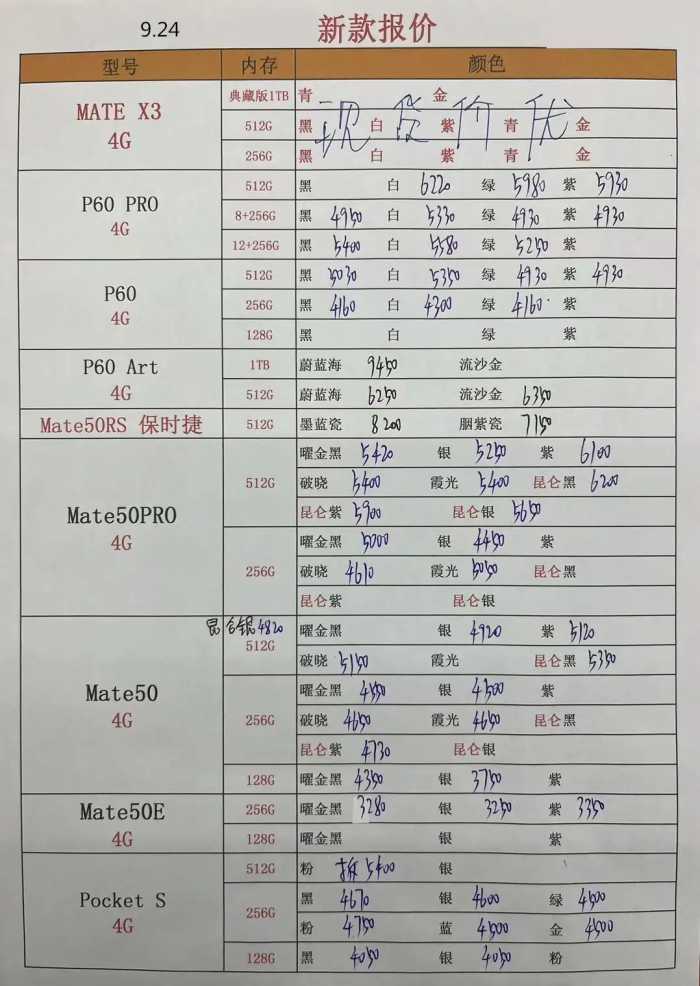 9.24 新款报价
型号 内存 颜色
MATE X3 4G 典藏版1TB 青 金
512G 黑 白 紫 青 金
256G 黑 白 紫 青 金
现货价优
P60 PRO 4G 512G 黑 白 6220 绿 5980 紫 5930
8+256G 黑 4950 白 5330 绿 4930 紫 4930
12+256G 黑 5400 白 5580 绿 5250 紫
P60 4G 512G 黑 5030 白 5350 绿 4930 紫 4930
256G 黑 4160 白 4300 绿 4160 紫
128G 黑 白 绿 紫
P60 Art 4G 1TB 蔚蓝海 9450 流沙金
512G 蔚蓝海 6250 流沙金 6350
Mate50RS 保时捷 512G 墨蓝瓷 8200 胭紫瓷 7150
Mate50PRO 4G 512G 曜金黑 5420 银 5250 紫 6100
破晓 5400 霞光 5400 昆仑黑 6200
昆仑紫 5900 昆仑银 5650
256G 曜金黑 5200 银 4450 紫
破晓 4610 霞光 5050 昆仑黑
昆仑紫 昆仑银
Mate50 4G 昆仑银 4820 512G 曜金黑 银 4920 紫 5120
破晓 5150 霞光 昆仑黑 5350
256G 曜金黑 4550 银 4500 紫
破晓 4650 霞光 4650 昆仑黑
昆仑紫 4730 昆仑银
128G 曜金黑 4350 银 3750 紫
Mate50E 4G 256G 曜金黑 3280 银 3250 紫 3350
128G 曜金黑 银 紫
Pocket S 4G 512G 粉 拆 5400 银
256G 黑 4670 银 4600 绿 4500
粉 4750 蓝 4500 金 4500
128G 黑 4050 银 4050 粉